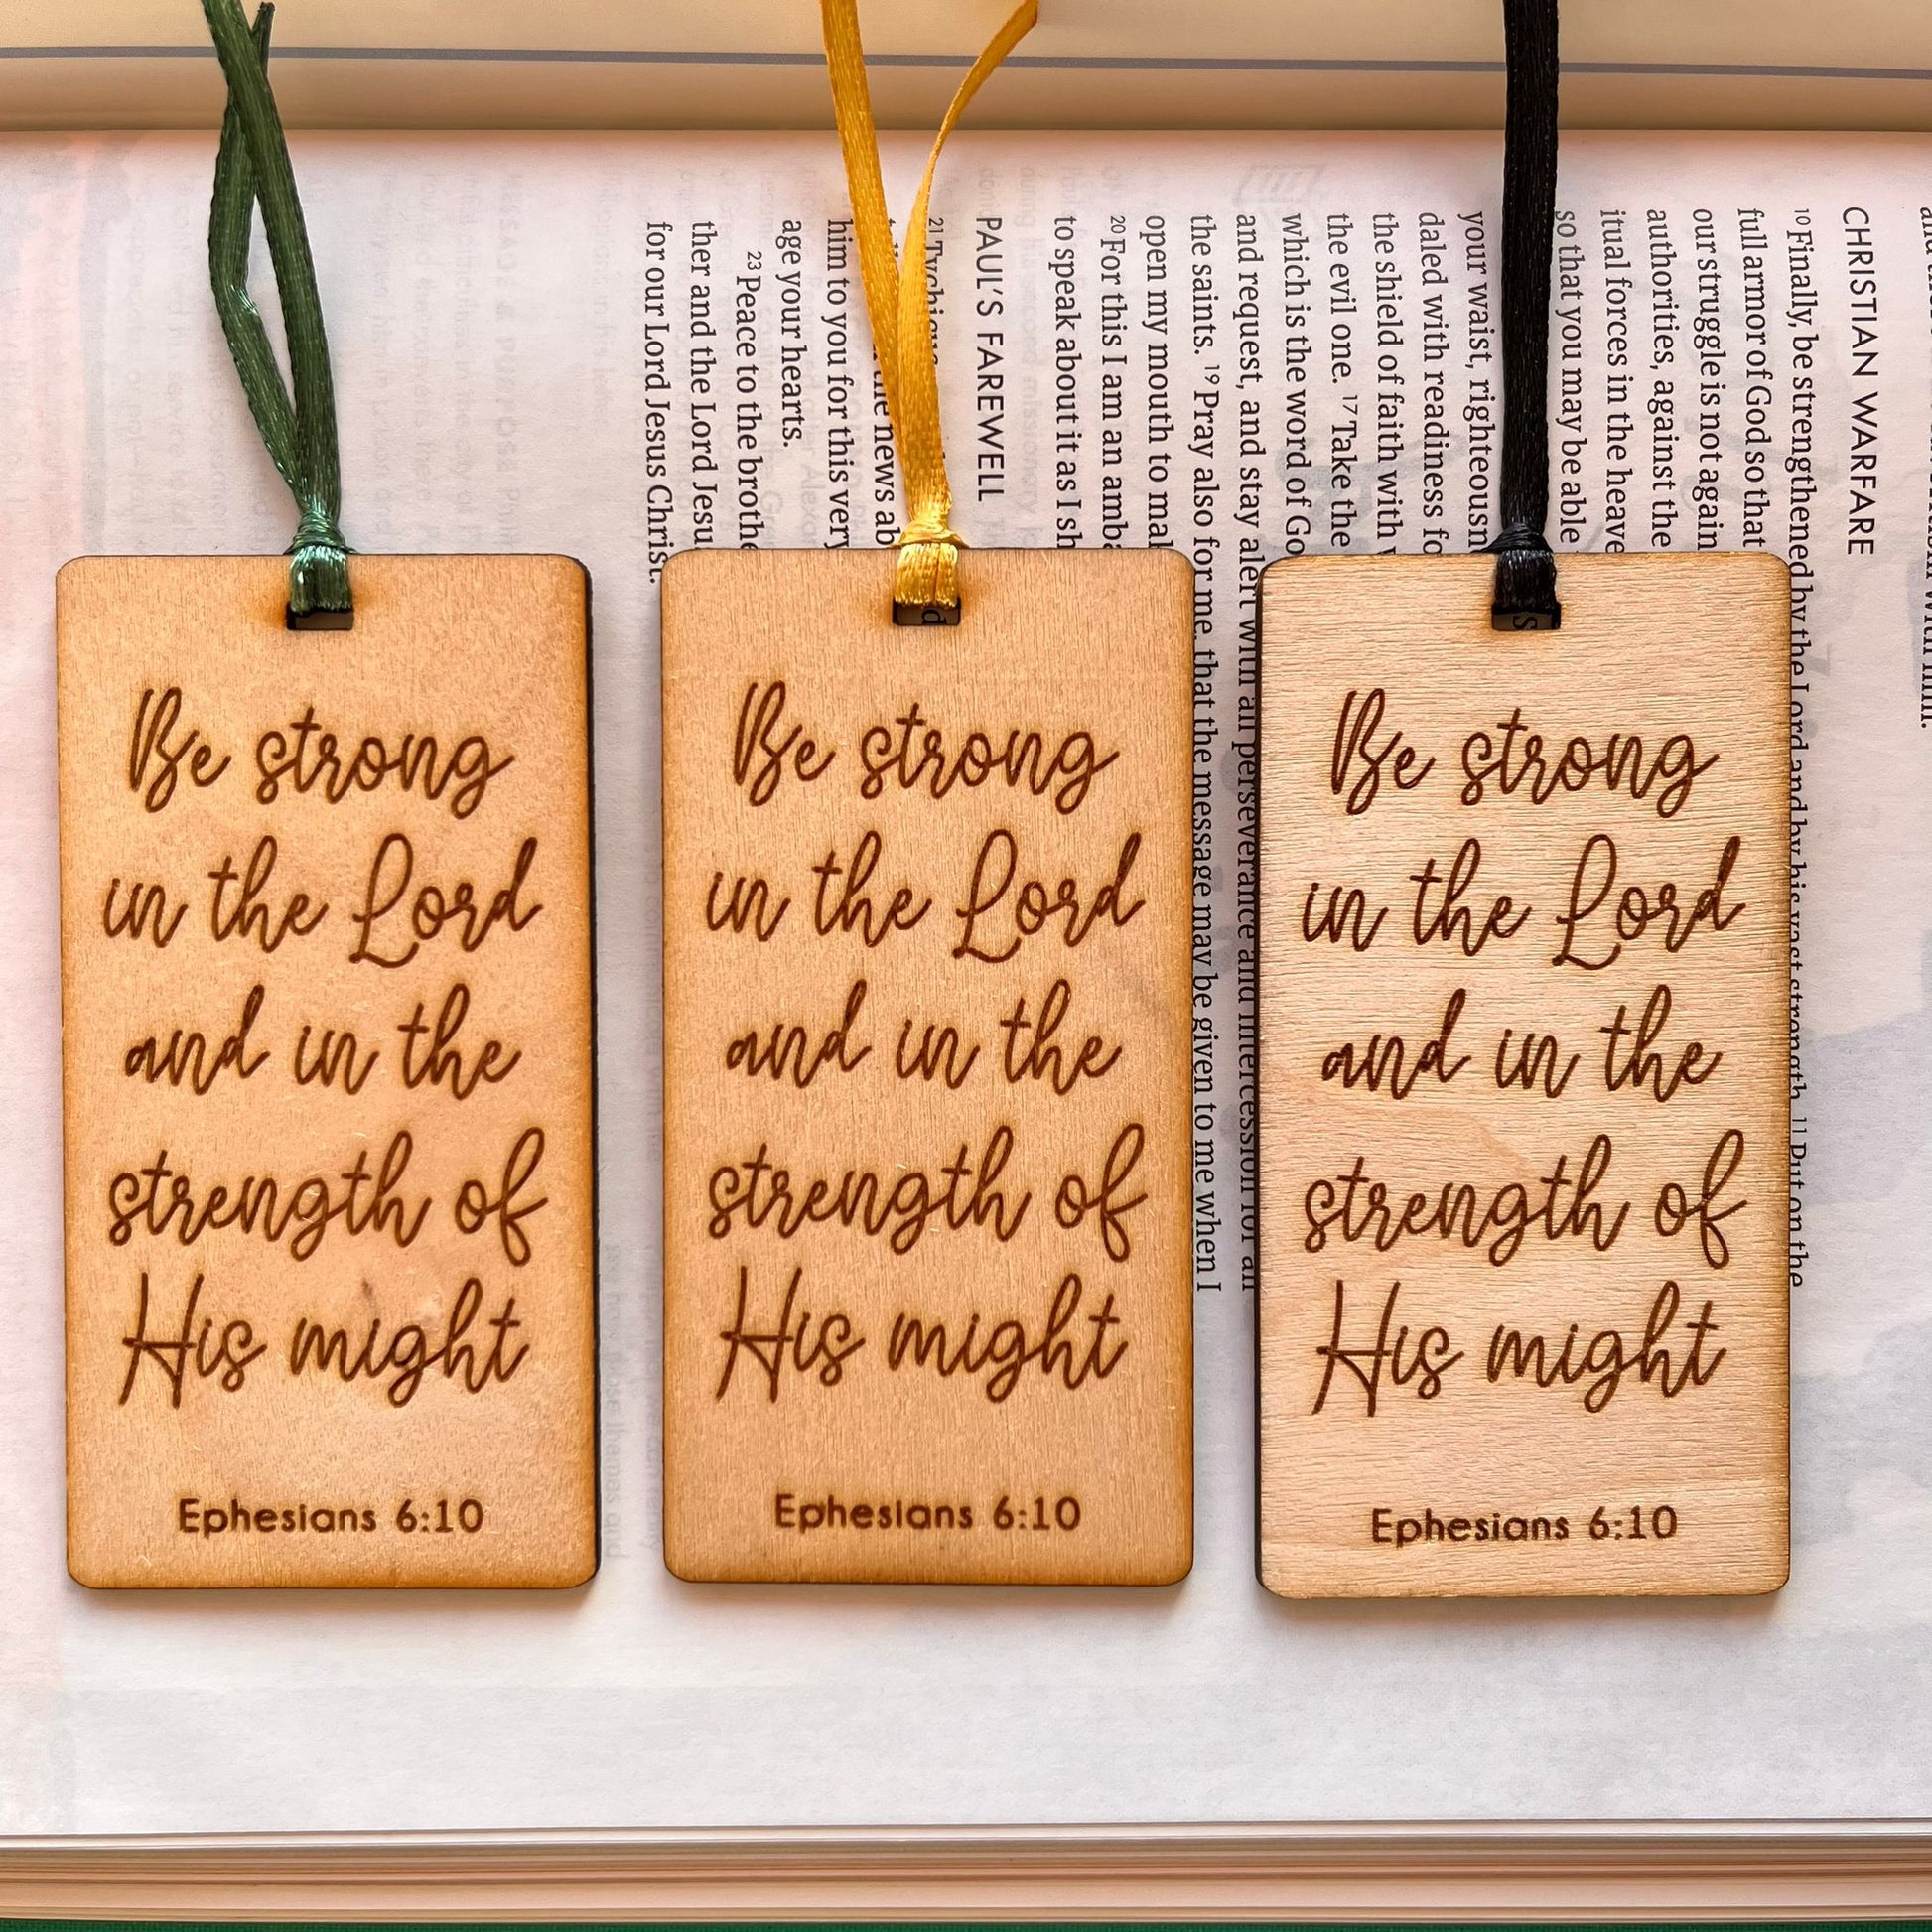 Be strong
in the Lord
and in the
strength of
His might
Ephesians 6:10
Be strong
in the Lord
and in the
strength of
His might
Ephesians 6:10
Be strong
in the Lord
and in the
strength of
His might
Ephesians 6:10
CHRISTIAN WARFARE
10 Finally, be strengthened by the Lord and by his vast strength. 11 Put on the
full armor of God so that
our struggle is not again
authorities, against the
itual forces in the heave
so that you may be able
your waist, righteousn
daled with readiness fo
the shield of faith with
the evil one. 17 Take the
which is the word of Go
and request, and stay alert with all perseverance and intercession for all
the saints. 19 Pray also for me, that the message may be given to me when I
open my mouth to mak
20 For this I am an amba
to speak about it as I sh
PAUL'S FAREWELL
21 Tychicus
the news ab
him to you for this very
age your hearts.
23 Peace to the brothe
ther and the Lord Jesu
for our Lord Jesus Christ.